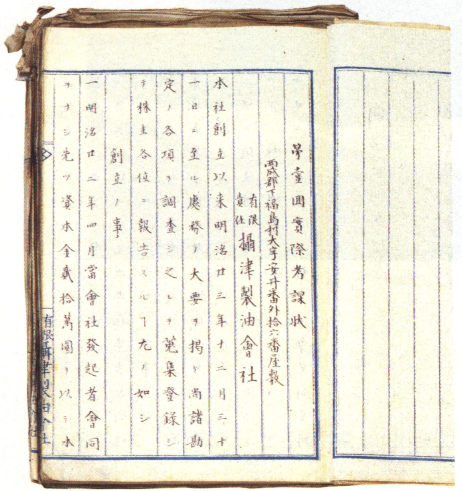 第壹回實際考課状
西成郡下福島村大字安井番外拾六番屋敷
有限責任 攝津製油會社
本社創立以来明治廿三年十二月三十
一日ニ至ル処務ノ大要ヲ掲ケ尚諸勘
定ノ各項ヲ調査シ之レヲ蒐集登録シ
テ株主各位ニ報告スル丁左ノ如シ
創立ノ事
一明治廿二年四月當會社發起者會同
ヲナシ先ツ資本金貳拾萬圓ヲ以テ本
有限攝津製油會社